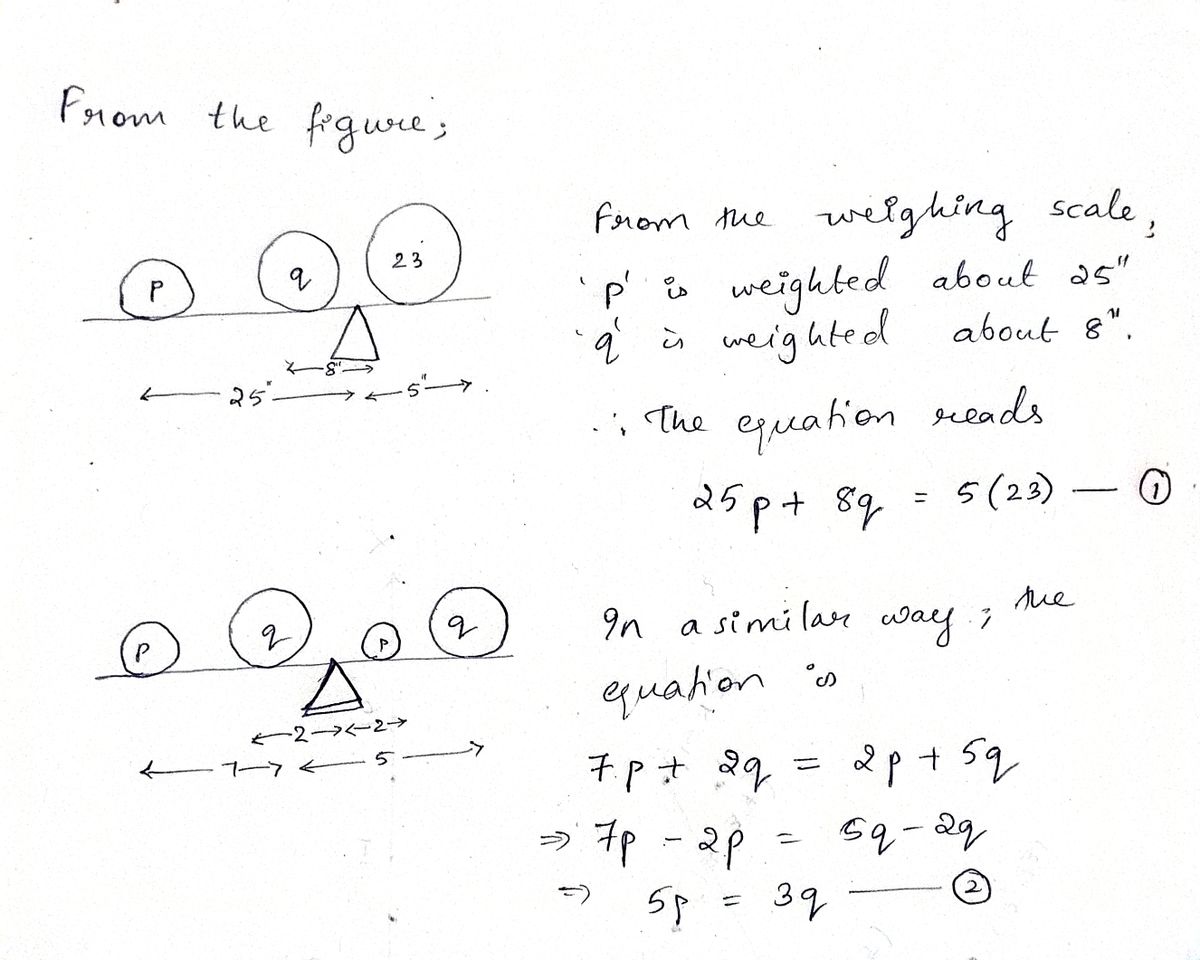 From the figure;
P q 23
8"
25" 5"
From the weighing scale,
'p' is weighted about 25"
'q' is weighted about 8".
∴ The equation reads
25p + 8q = 5(23) — ①
P q P q
2 2
7 5
In a similar way; the
equation is
7p + 2q = 2p + 5q
⇒ 7p - 2p = 5q - 2q
⇒ 5p = 3q — ②